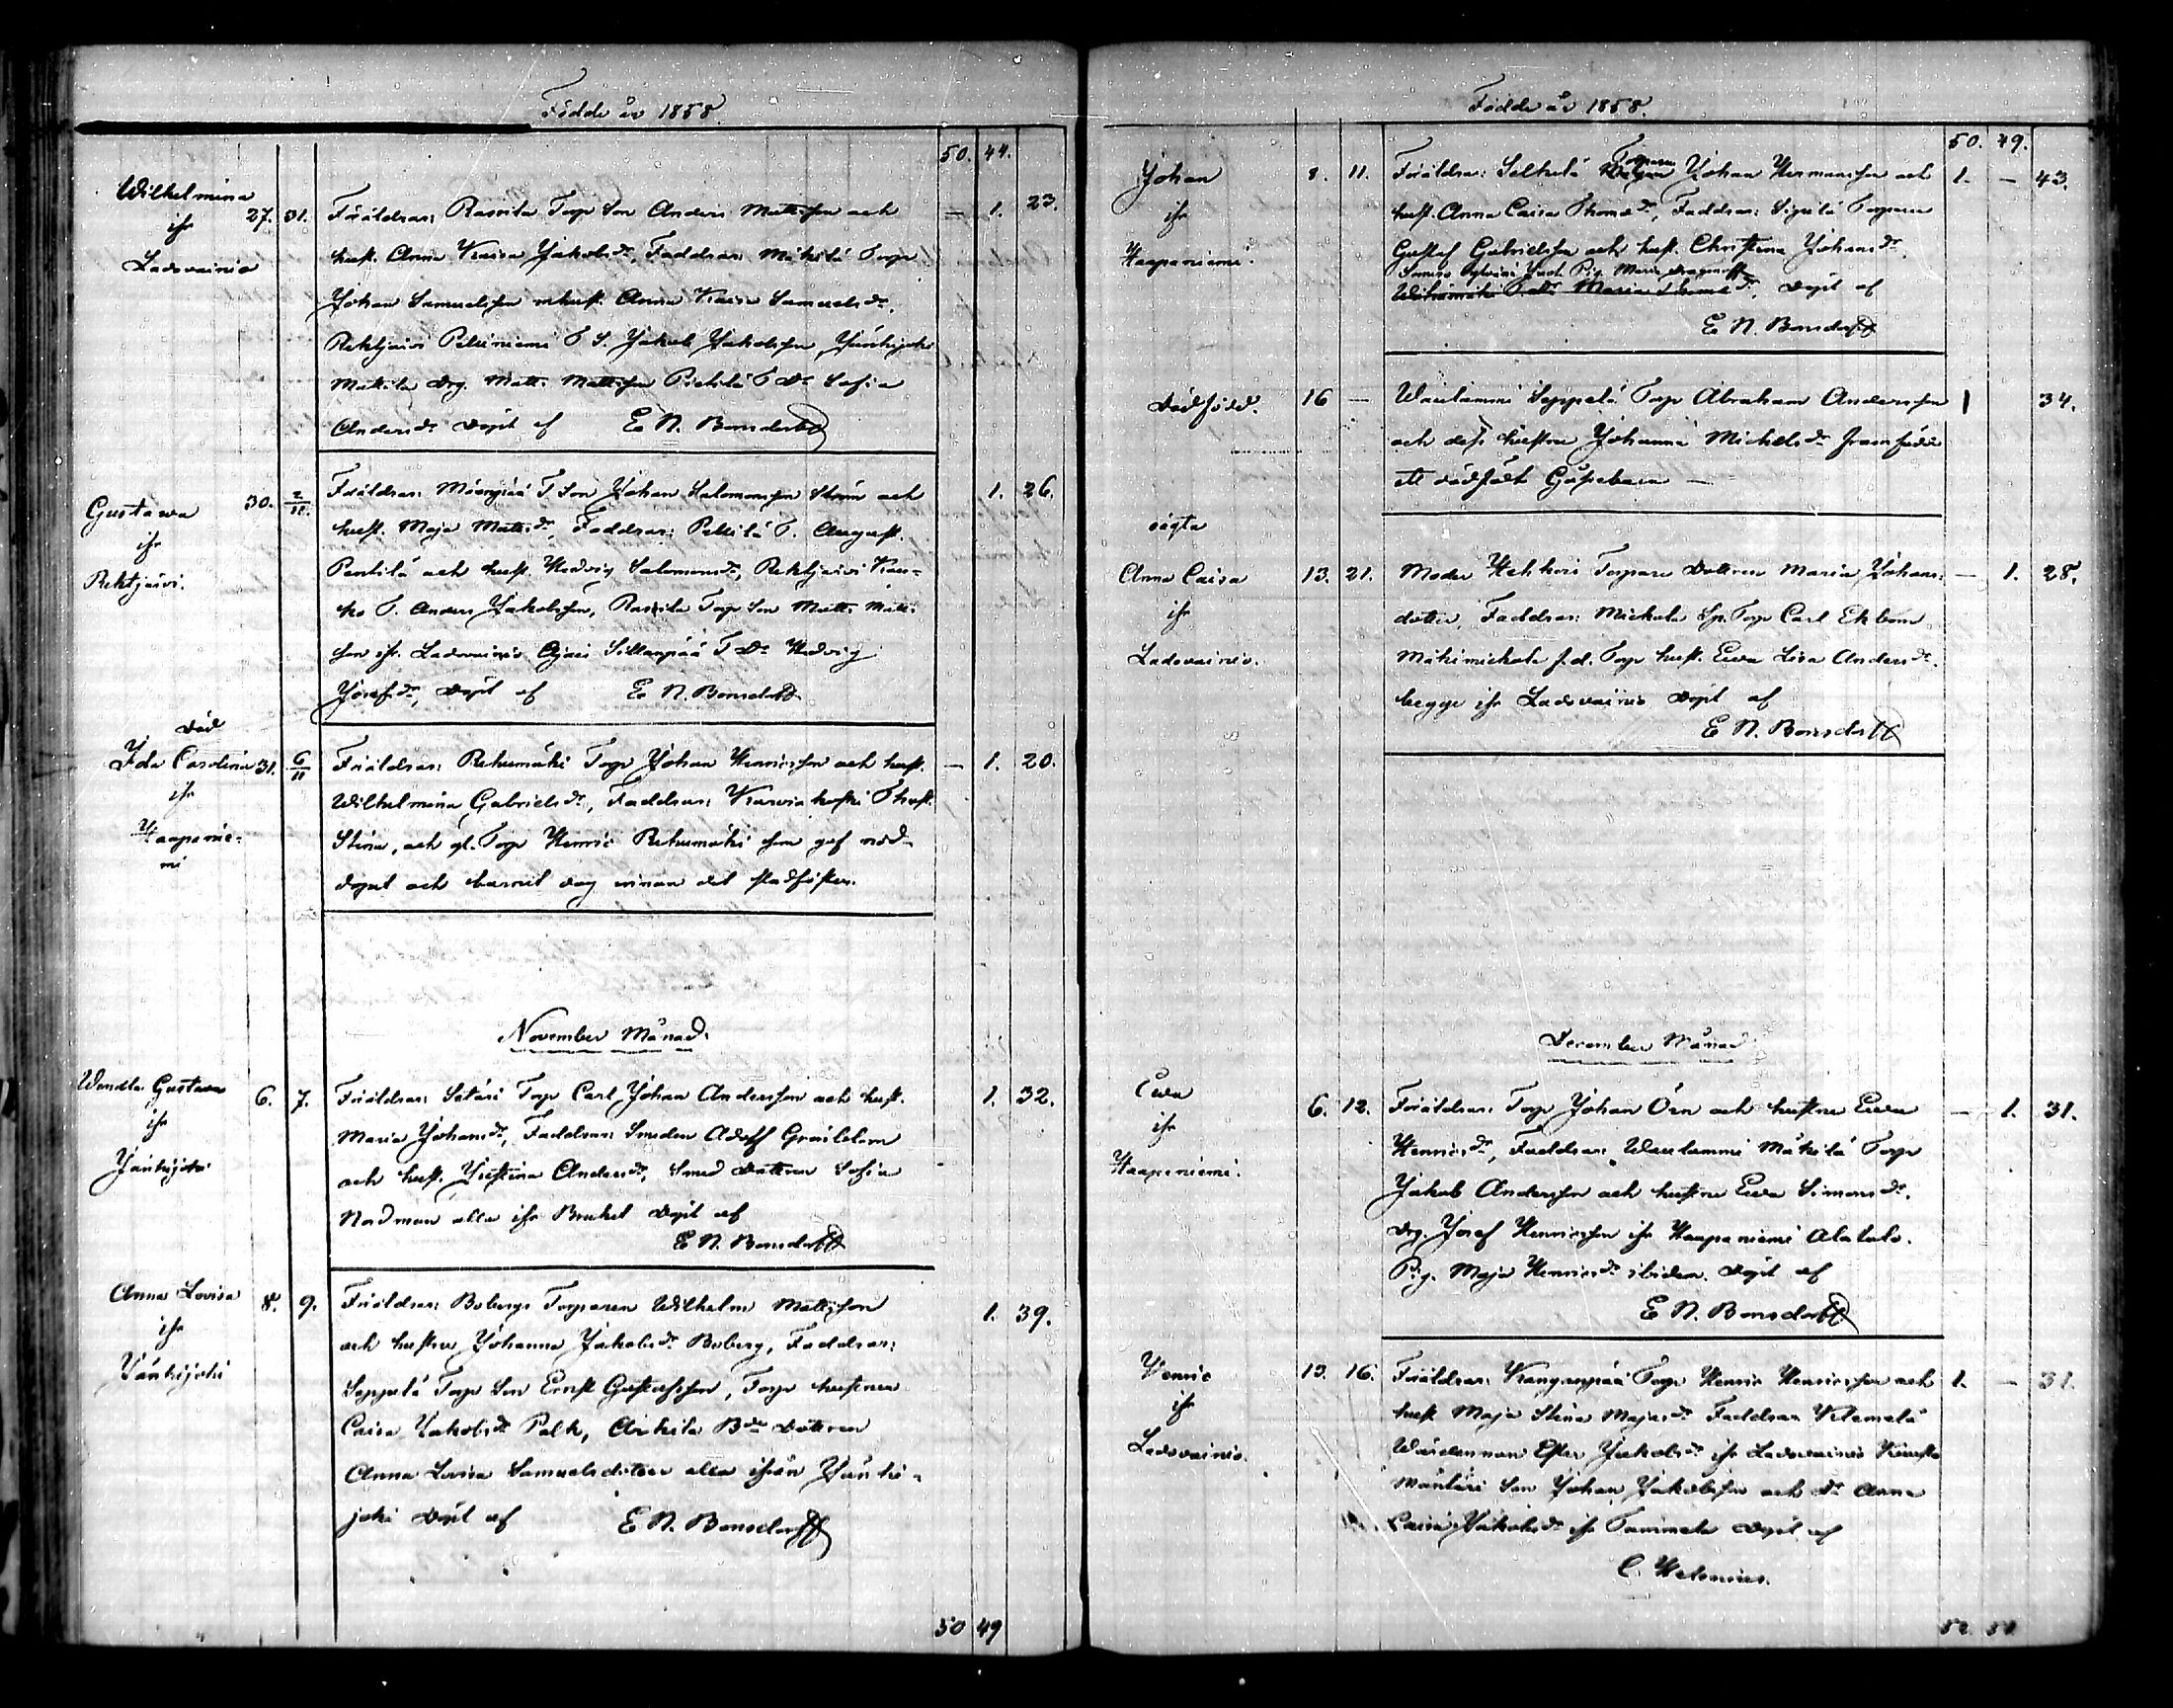 Födde år 1858.
50. 44.
Wilhelmina
ifr
Ladovainio
27. 31.
Föräldrar: Rasvita Torp Son Anders Mattsson och
hust. Anna Kaisa Jakobsdr, Faddrar: Mäkilä Torp
Johan Samuelsson m hust. Anna Kaisa Samuelsdr.
Rehtjärvi T S. Jakob Jakobsson, Jänhijoki
Mattila Drg. Matts Mattsson T Dr Sofia
Andersdr Döpt af E N. Bonsdorff
— 1. 23.
Gustawa
ifr
Rehtjärvi.
30. 2/11.
Föräldrar: T Son Johan Salomonsson och
hust. Maja Mattsdr, Faddrar: Pekilä T. August
Pentilä och hust. Hedvig Salomonsdr, Rehtjärvi Kau-
ko T. Anders Jakobsson, Rasvita Torp Son Matts Matts-
son ifr. Ladovainio Ojais Sillanpää T Dr Hedvig
Josefsdr, Döpt af E N. Bonsdorff
1. 26.
Död
Ida Carolina
ifr
Haapanie-
mi
31. 6/11
Föräldrar: Rehumäki Torp Johan Henricsson och hust.
Wilhelmina Gabrielsdr, Faddrar: Karviakoski T hust.
Stina, och gl. Torp Henric Rehumäki som gaf nöd-
döpet och barnet dog innan det stadfästes.
— 1. 20.
November Månad.
Wendla Gustava
ifr
Jänhijoki
6. 7.
Föräldrar: Sätäri Torp Carl Johan Andersson och hust.
Maria Johansdr, Faddrar: Smeden Adolf
och hust. Justina Andersdr, Smed Dottren Sofia
Nordman alla ifr Bruket Döpt af
E N. Bonsdorff
1. 32.
Anna Lovisa
ifr
Jänhijoki
8. 9.
Föräldrar: Bobergs Torparen Wilhelm Mattsson
och hustru Johanna Jakobsdr Boberg, Faddrar:
Seppälä Torp Son Ernst Gustafsson, Torp hustrun
Caisa Jakobsdr Palk, Arkila Bde Dottren
Anna Lovisa Samuelsdotter alla ifrån Jänhi-
joki Döpt af E N. Bonsdorff
1. 39.
50 49
Födde år 1858.
50. 49.
Johan
ifr
Haapaniemi.
8. 11.
Föräldrar: Selkilä Torparen Johan Hermansson och
hust. Anna Caisa Thomasdr, Faddrar: Sipilä Torparen
Gustaf Gabrielsson och hust. Christina Johansdr.
Somero Pig. Maria
Maria Döpt af
E N. Bonsdorff
1. — 43.
Dödfödd.
16 —
Waulammi Seppälä Torp Abraham Andersson
och dess hustru Johanna Michelsdr framfödde
ett dödfödt Gossebarn —
1 34.
oägta
Anna Caisa
ifr
Ladovainio.
13. 21.
Moder Hehkoi Torpare Dottren Maria Johans-
dotter, Faddrar: Mickola Sp. Torp Carl Ekbom
Mäkimickola f.d. Torp hust. Ewa Lisa Andersdr.
begge ifr Ladovainio Döpt af
E N. Bonsdorff
— 1. 28.
December Månad
Ewa
ifr
Haapaniemi.
6. 12.
Föräldrar: Torp Johan Örn och hustru Ewa
Henricsdr, Faddrar: Waulammi Mäkilä Torp
Jakob Andersson och hustru Ewa Simonsdr.
Drg. Josef Henricsson ifr Haapaniemi Alatalo.
Pig. Maja Henricsdr ibidem. Döpt af
E N. Bonsdorff
— 1. 31.
Henric
ifr
Ladovainio.
13. 16.
Föräldrar: Kanganpää Torp Henric Henricsson och
hust Maja Stina Majasdr Faddrar
Ester Jakobsdr ifr Ladovainio
Mäntäri Son Johan Jakobsson och Dr Anna
Caisa Jakobsdr ifr Tammela Döpt af
C. Helenius.
1. — 31.